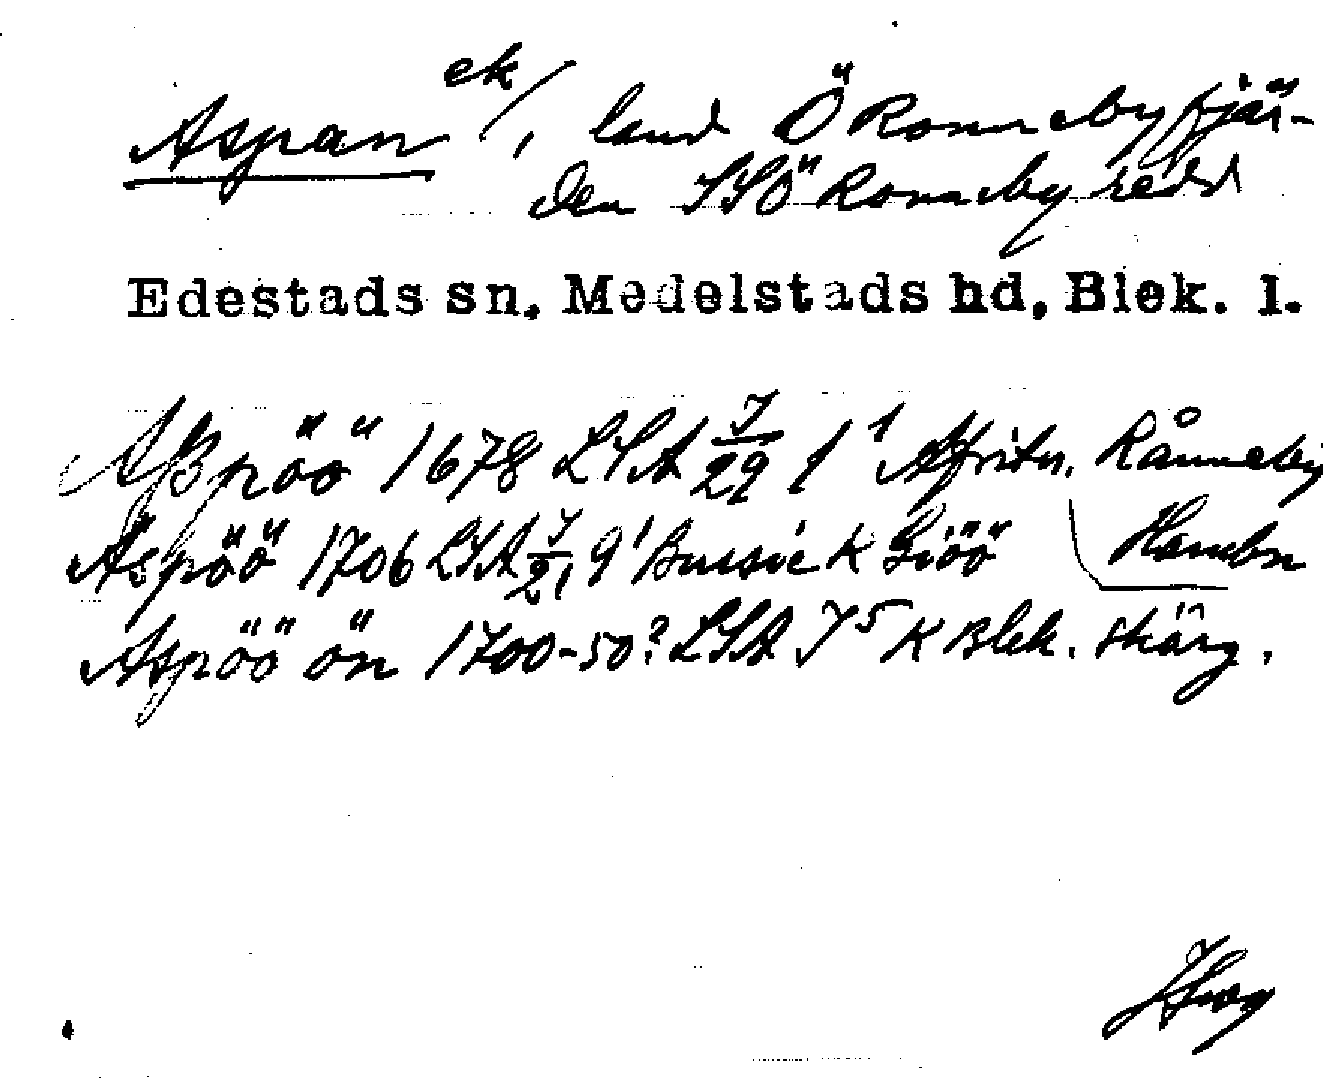 Aspan ek/, land Ö Ronnebyfjär-
den SSÖ Ronneby redd
Edestads sn, Medelstads hd, Blek. l.
Aßpöö 1678 LSA J/29 1 1 Afritn. Rånneby
Hambn
Aspöö 1706 LSA J/21 9 1 K Siöö
Aspöö ön 1700-50? LSA J5 K Blek. skärg.